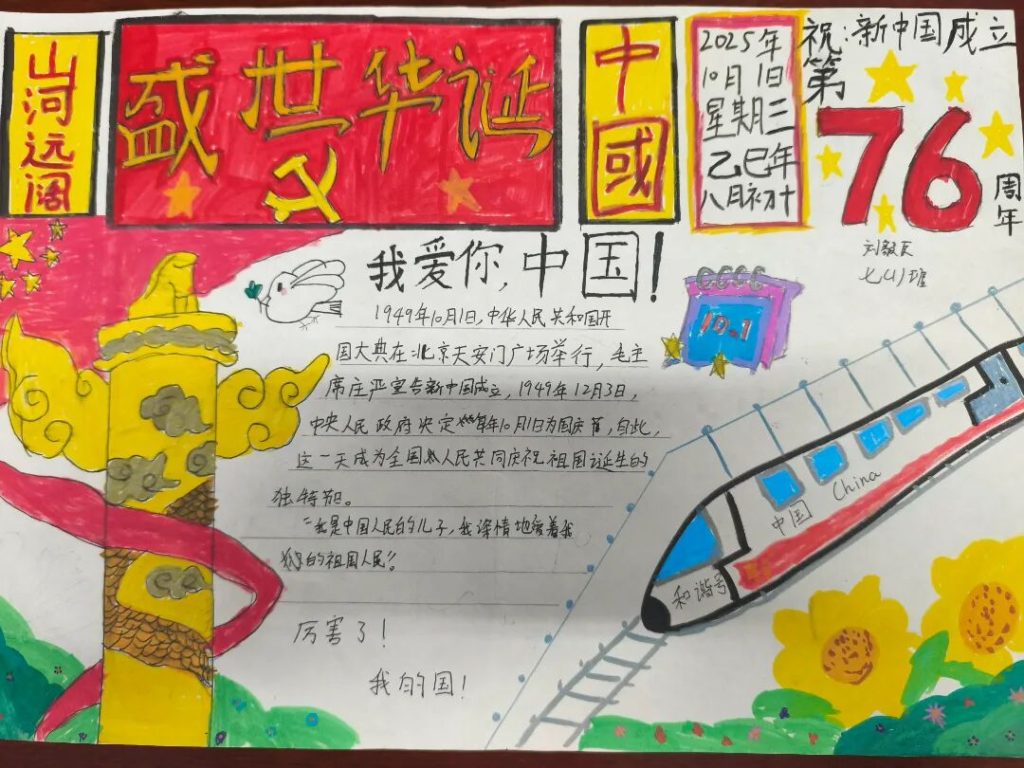 山河远阔
盛世华诞
中國
2025年
10月1日
星期三
乙巳年
八月初十
祝:新中国成立
第
76
周年
七(1)班
我爱你,中国!
1949年10月1日,中华人民共和国开
国大典在北京天安门广场举行,毛主
席庄严宣告新中国成立,1949年12月3日,
中央人民政府决定每年10月1日为国庆节,自此,
这一天成为全国人民共同庆祝祖国诞生的
独特
“我是中国人民的儿子,我深情地爱着我
的祖国人民”。
厉害了!
我的国!
10.1
中国 China
和谐号